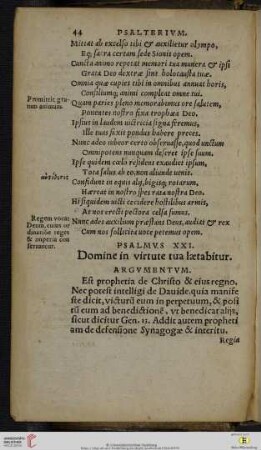 44 PSALTERIVM.
Mittat ab excelso tibi & auxilietur olympo,
Eq; sacra certam sede Sionis opem.
Cuncta animo repetat memori tua munera & ipsi
Grata Deo dextræ sint holocausta tuæ.
Omnia quæ cupies tibi in omnibus annuat horis,
Consiliumq; animi compleat omne tui.
Promittit gratum animum.
Quam paries pleno memorabimus ore salutem,
Ponentes nostro fixa trophæa Deo.
Ipsius in laudem victricia signa feremus,
Ille tuas fixit pondus habere preces.
Nunc adeo iubeor certo obseruasse, quod unctum
Omnipotens nunquam deseret ipse suum.
Ipse quidem cælo residens exaudiet ipsum,
Tota salus ab eo, non aliunde uenit.
Confidunt ut equis alij, bigisq; rotarum,
Hærent in nostro spes rata nostra Deo.
Hi siquidem uicti cecidere hostilibus armis,
At nos erecti pectora celsa sumus.
Regem vocat Deum,
Nunc adeo auxilium præstans Deus, audiat & rex
Cum nos sollicita uoce petemus opem.
PSALMVS XXI.
Domine in virtute tua lætabitur.
ARGVMENTVM.
Est prophetia de Christo & eius regno.
Nec potest intelligi de Dauide, quia manife
ste dicit, victurū eum in perpetuum, & posi
tū eum ad benedictionē, vt benedicat alijs,
sicut dicitur Gen. 12. Addit autem propheti
am de defensione Synagogæ & interitu.
Regia